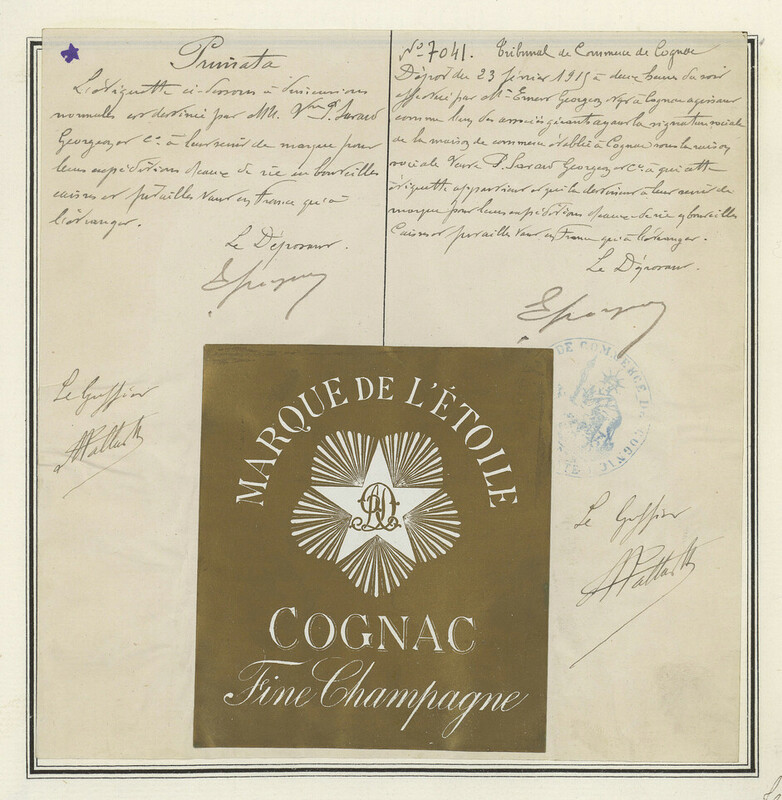 Primata
L'étiquette ci-dessus à dimensions
normales est destinée par MM. Vve P. Sarazd
Georgeon et Cie à leur servir de marque pour
leurs expéditions d'eaux de vie en bouteilles
caisses et futailles tant en France qu'à
l'étranger.
Le Déposant.
Le Greffier
No 7041. Tribunal de Commerce de Cognac
Dépôt du 23 février 1915 à deux heures du soir
effectué par Mr Ernest Georgeon Négt à Cognac agissant
comme l'un des associés gérants ayant la signature sociale
de la maison de commerce établie à Cognac sous la raison
sociale Veuve P. Georgeon et Cie à qui cette
étiquette appartient et qui la destinent à leur servir de
marque pour leurs expéditions d'eaux-de-vie en bouteilles
caisses et futailles tant en France qu'à l'étranger.
Le Déposant.
DE COMMERCE DE COGNAC
Le Greffier
MARQUE DE L'ÉTOILE
COGNAC
Fine Champagne